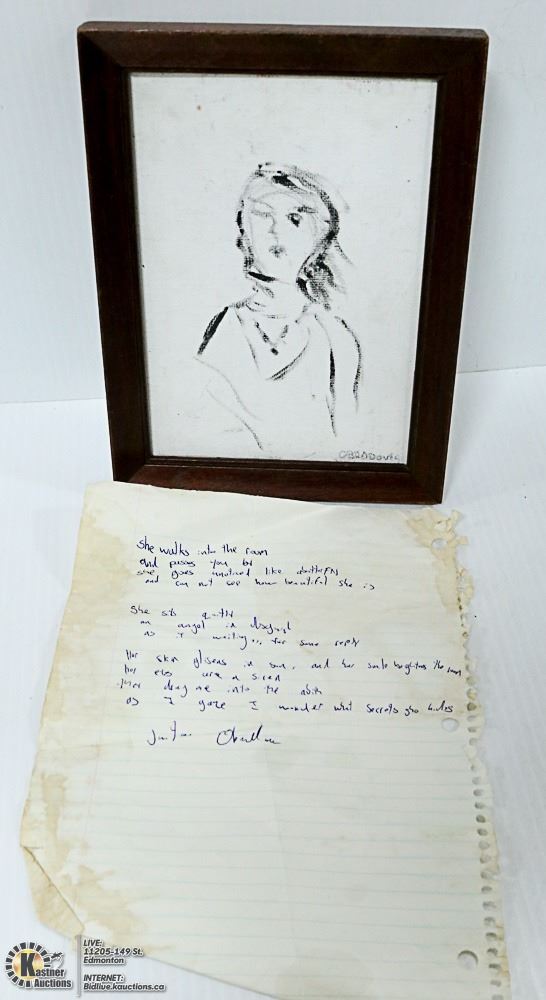 OBRADOVIC
She walks into the room
and passes you by
she goes unoticed like
and can not see how beautiful she is
She sits quietly
an angel in
as I waiting... for some reply
Her skin glisens in sun, and her smile brightens the room
her eyes are a siren
drag me into the
as I gaze I wonder what secrets she hides
Kastner
Auctions
LIVE:
11205-149 St.
Edmonton
INTERNET:
Bidlive.kauctions.ca